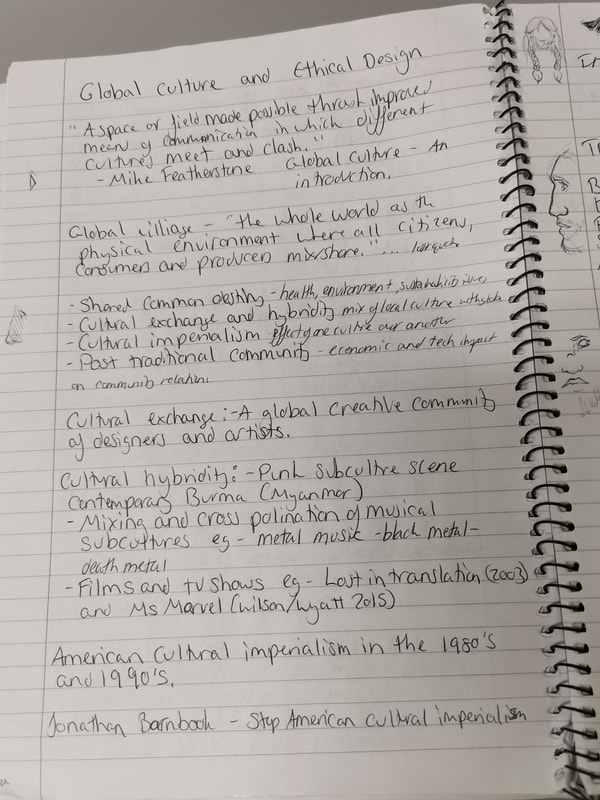 Global culture and Ethical Design
"A space or field made possible through improved
means of communication in which different
cultures meet and clash."
- Mike Featherstone Global culture - An
introduction.
Global village - "the whole world as the
physical environment where all citizens,
consumers and producers mix/share." ...
- Shared common destiny - health, environment,
- Cultural exchange and hybridity mix of local culture
- Cultural imperialism effect of one culture over another
- Post traditional community - economic and tech impact
on community relations.
Cultural exchange:- A global creative community
of designers and artists.
Cultural hybridity: - Punk subculture scene
Contemporary Burma (Myanmar)
- Mixing and cross polination of musical
subcultures eg - metal music - black metal -
death metal
- Films and tv shows eg - Lost in translation (2003)
and Ms Marvel (Wilson/Wyatt 2015)
American Cultural imperialism in the 1980's
and 1990's.
Jonathan Barnbook - Stop American cultural imperialism